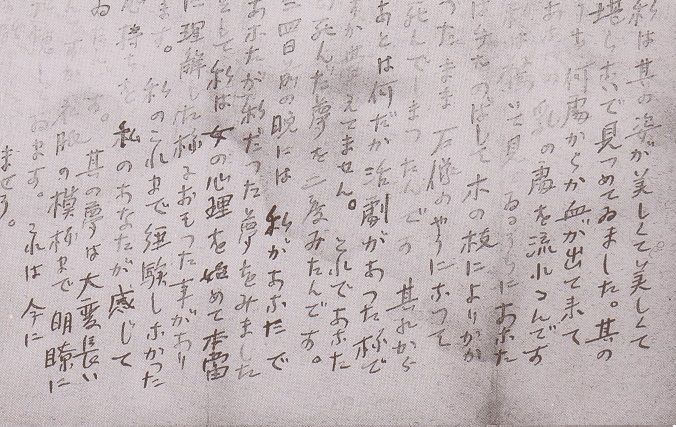 私は其の姿が美しくて美しくて
堪らないで見つめてゐました。其の
うち何處からか血が出て来て
あなたの乳の處を流れるんです
見るうちにあなた
はのばして木の枝によりかか
つたまま石像のやうになつて
死んでしまつたんです 其れから
あとは何だか活劇があつた様で
すが覚えてません。それであなた
の死んだ夢を二度みたんです。
三四日前の晩には私があなたで
あなたが私だつた夢をみました
そして私は女の心理を始めて本當
に理解した様におもつた事があり
ます。私のこれまで経験しなかつた
心持ちを私のあなたが感じて
ゐました。其の夢は大変長い
衣服の模様まで明瞭に
ゐます。それは今に
ませう。